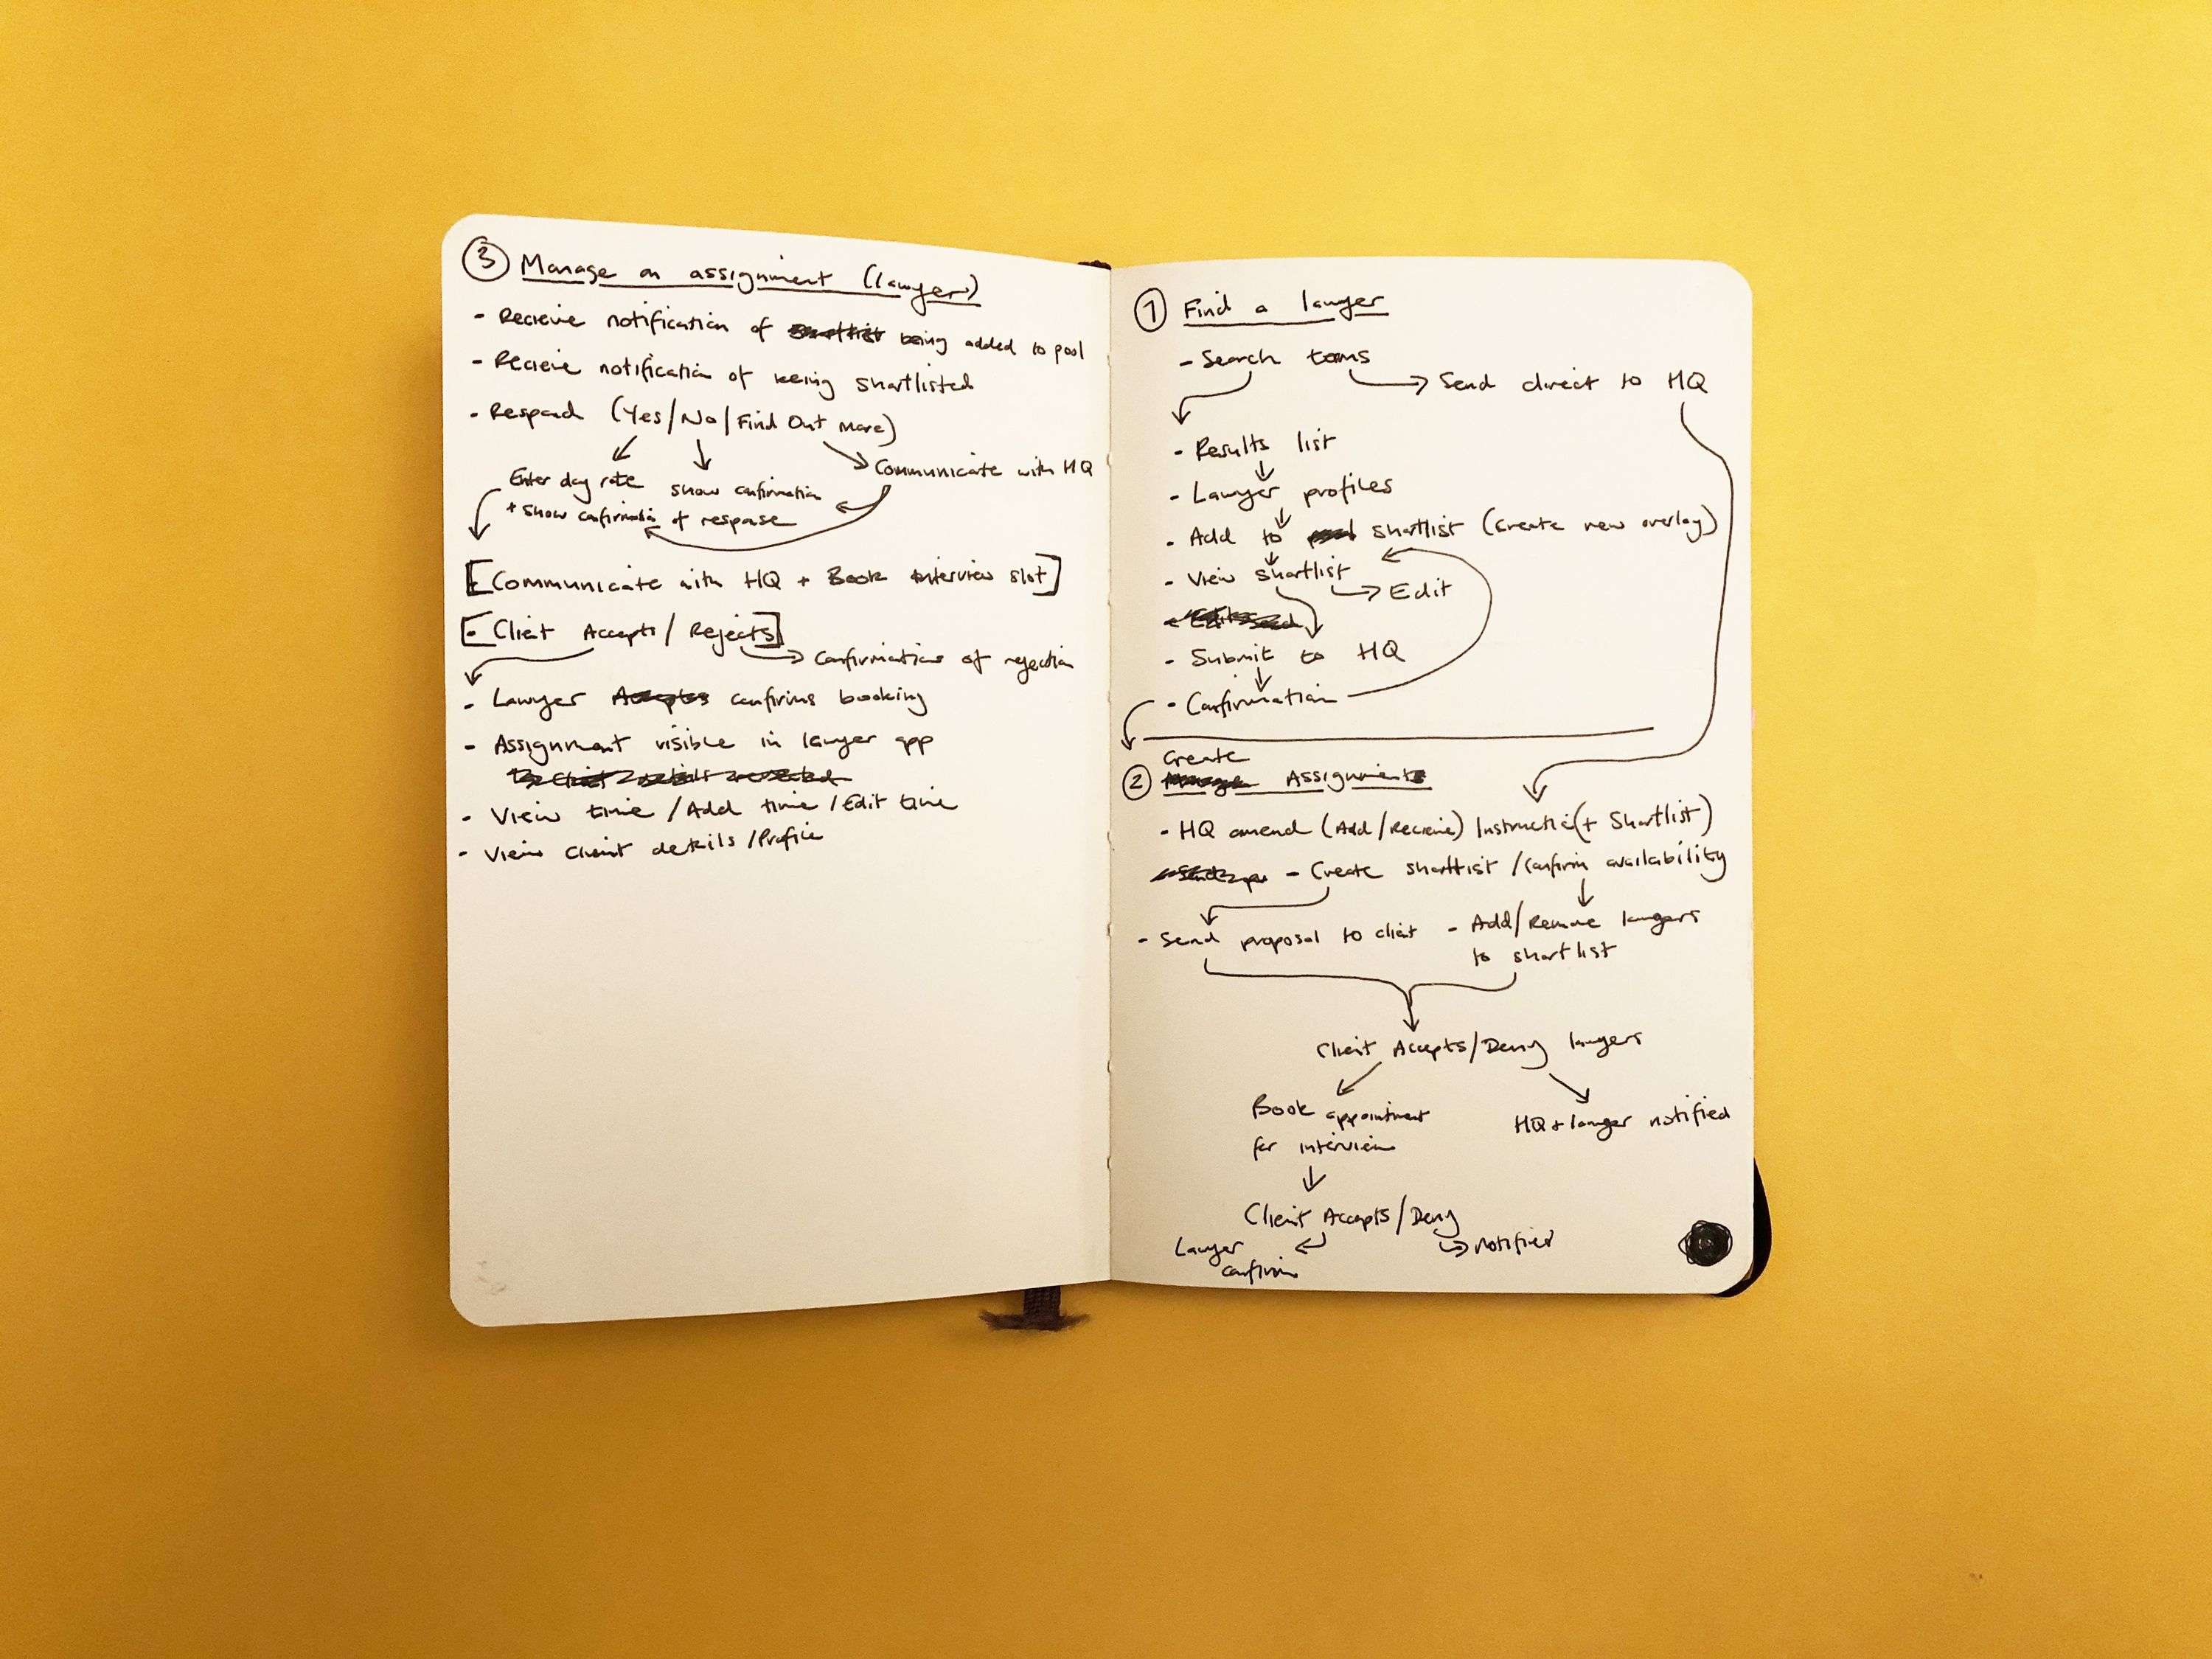 ③ Manage an assignment (lawyer)
- Recieve notification of being added to pool
- Recieve notification of being shortlisted
- Respond (Yes/No/Find Out More)
Enter day rate
+ show confirmation of response
show confirmation
Communicate with HQ
[- Communicate with HQ + Book interview slot]
[- Client Accepts/Rejects]
Confirmation of rejection
- Lawyer confirms booking
- Assignment visible in lawyer app
- View time / Add time / Edit time
- View client details / Profile
① Find a lawyer
- Search terms
Send direct to HQ
- Results list
- Lawyer profiles
- Add to shortlist (create new overlay)
- View shortlist
Edit
- Submit to HQ
- Confirmation
Create
② Assignment
- HQ amend (Add/Recieve) (+ Shortlist)
- Create shortlist / Confirm availability
- Send proposal to client
- Add/Remove lawyers
to shortlist
Client Accepts/Deny lawyers
Book appointment
for interview
HQ + lawyer notified
Client Accepts/Deny
Lawyer
confirm
notified